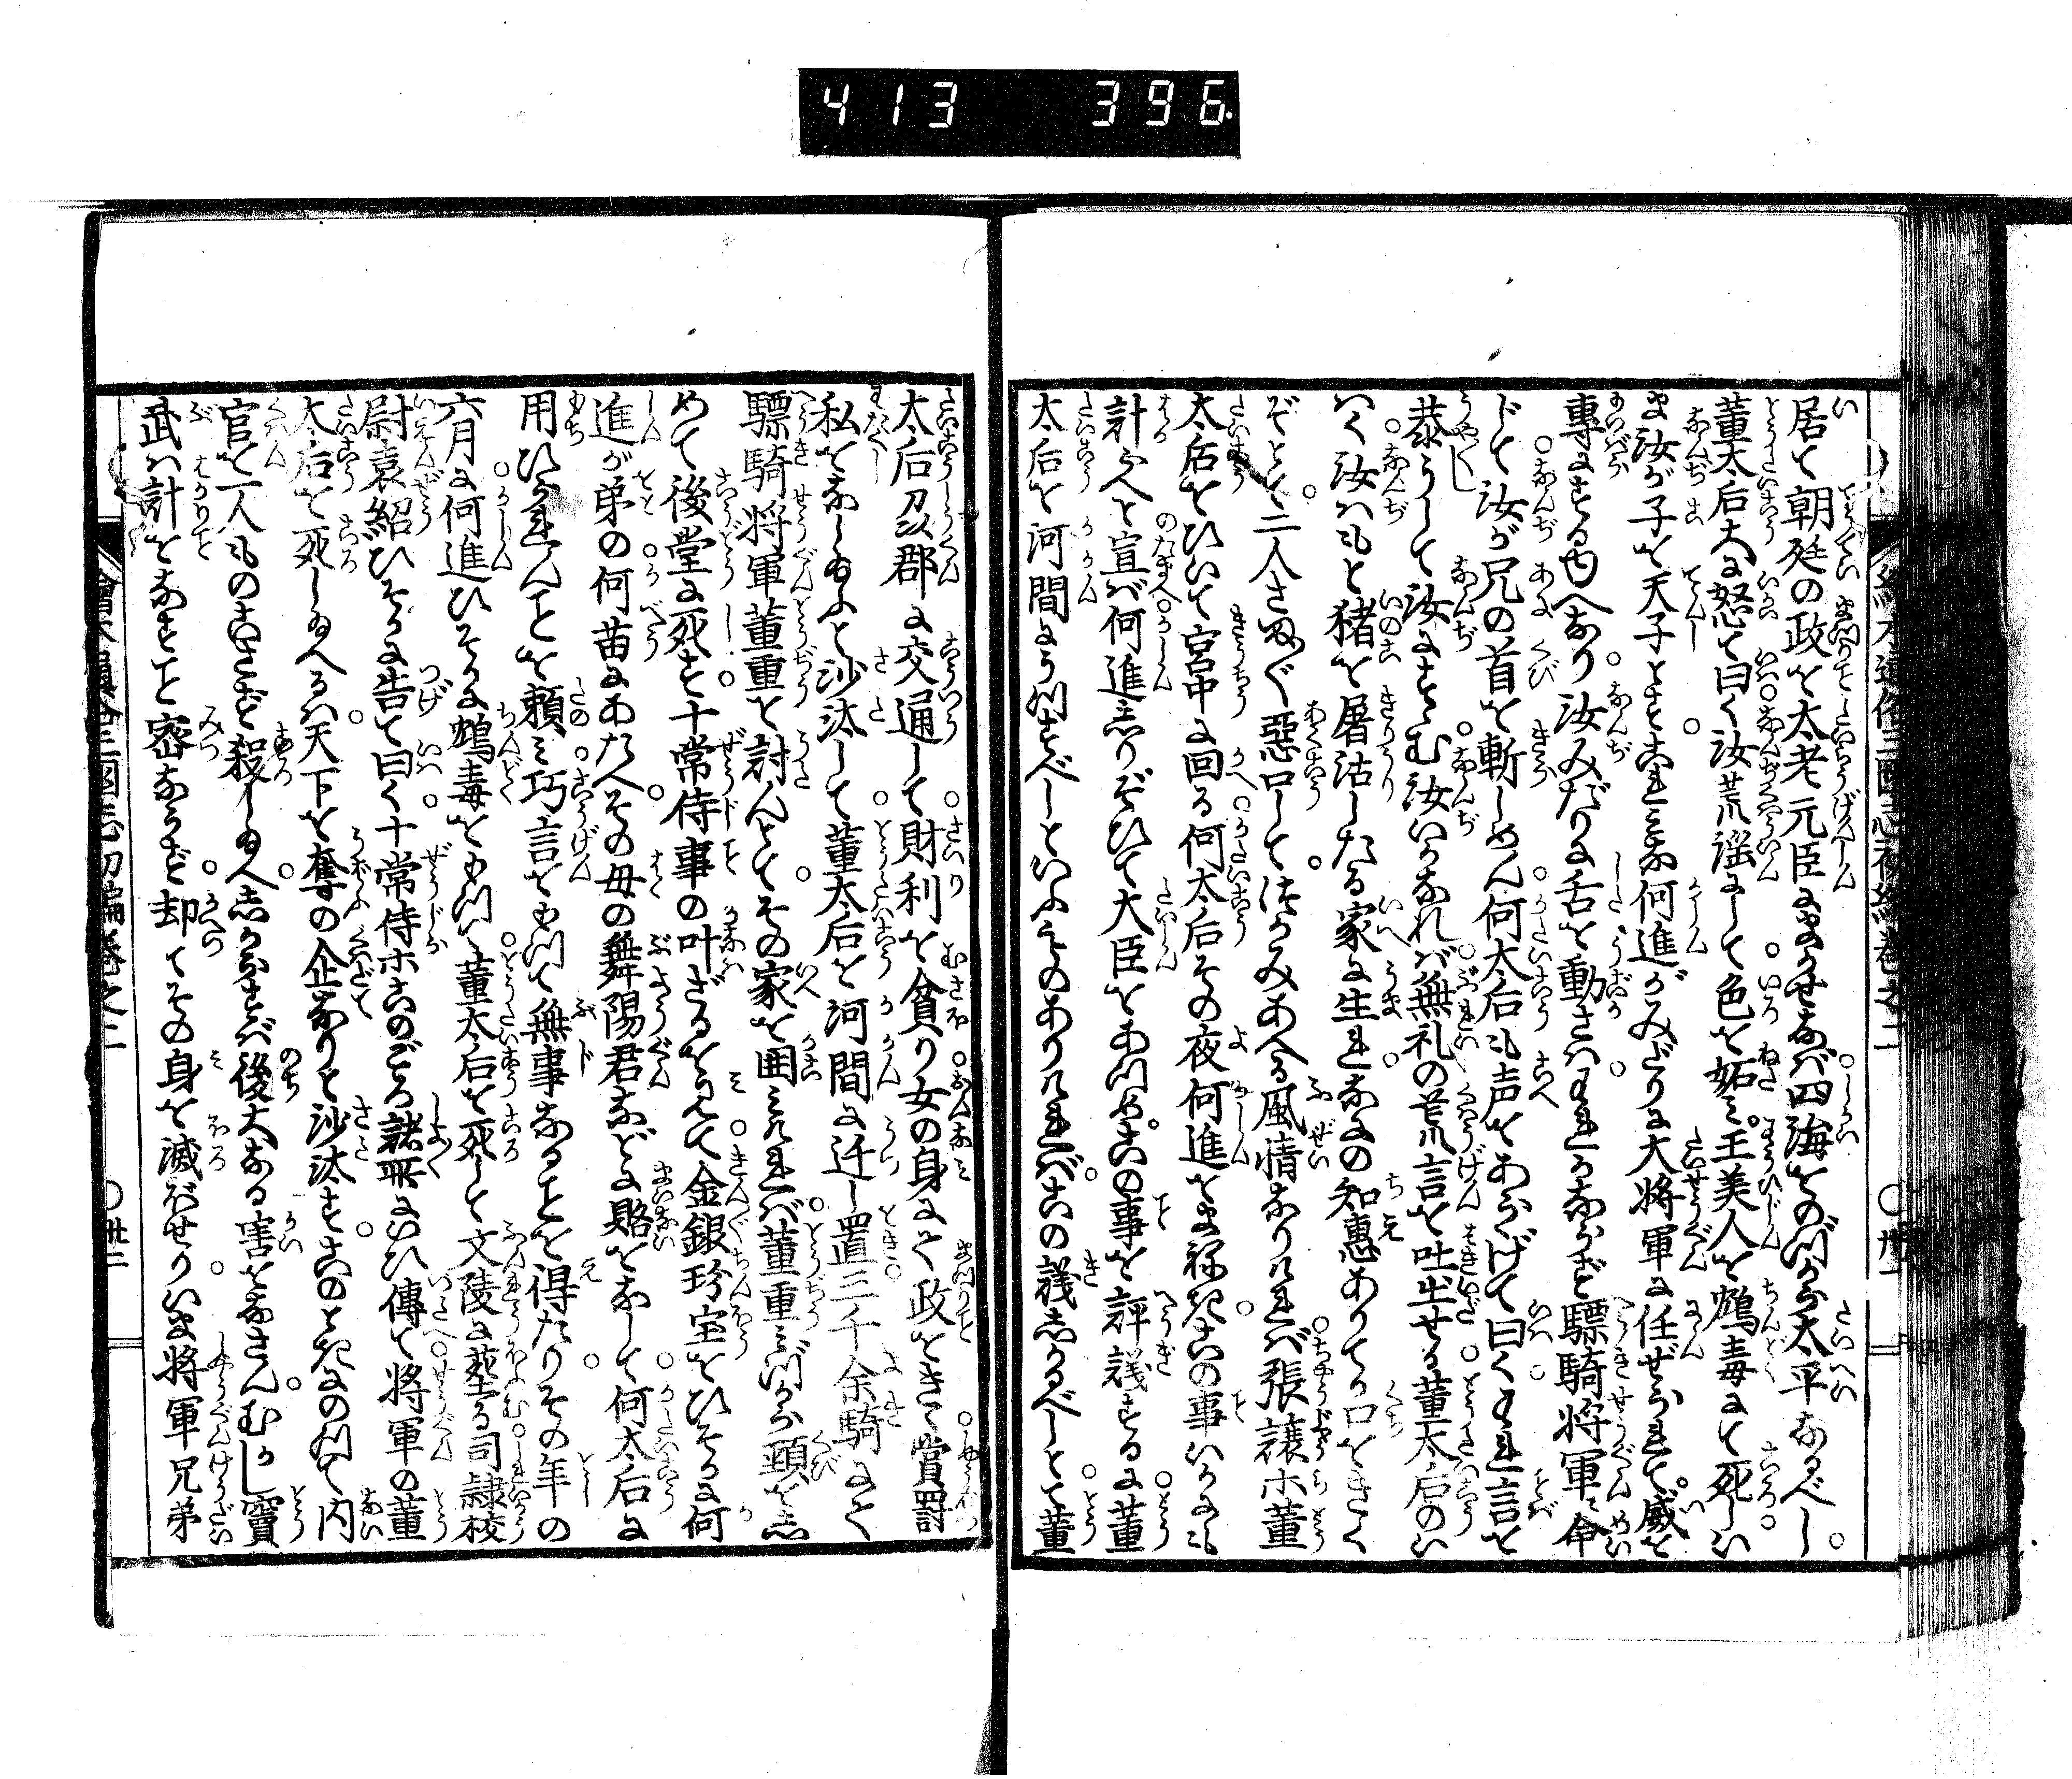 413 396
居て朝廷の政を太老元臣にまかせなば四海をのづから太平なるべし。
董太后大に怒て曰く汝荒淫にして色を妬ミ王美人を鴆毒にて死しい
ま汝が子を天子とすこれミな何進がみだりに大将軍に任ぜられて。威を
專にするゆへなり。汝みだりに舌を動さバわれるながらも驃騎将軍ニ命
じて汝が兄の首を斬しめん何太后も声をあらげて曰くわれ言を
恭うして汝にすゝむ汝いかなれバ無礼の荒言を吐出せる董太后のい
はく汝ハもと猪を屠沽したる家に生れなにの知恵ありてか口をきく
ぞとて。二人さわぐ惡口してつかみあへる風情なりければ張讓ホ董
太后をひいて宮中に回る何太后その夜何進をまねきこの事いかにも
計へと宣バ何進志りぞひて大臣をあつめこの事を評議するに董
太后を河間にうつすべしといふものありければこの議志かるべしとて董
絵本通俗三國志初編巻之二 〇卅一
太后刕郡に交通して財利を貪り女の身にて政をきゝ賞罸
私をなし玉ふと沙汰して董太后を河間に迁し置三千余騎にて
驃騎将軍董重を討んとてその家を囲ミければ董重ミづから頸を志
めて後堂に死す十常侍事の叶ざるをみて金銀珍宝をひそかに何
進が弟の何苗にあたへその母の舞陽君などに賂をなして何太后に
用ひられんことを頼ミ巧言をもつて無事なることを得たりその年の
六月に何進ひそかに鴆毒をもつて董太后を死して文陵に葬る司隷校
尉袁紹ひそかに告て曰く十常侍ホこのごろ諸所にいひ傳て将軍の董
太后を死し玉へるハ天下を奪の企なりと沙汰すこのときにのつて内
官を一人ものこさず殺し玉へ志からずんバ後大なる害をなさんむかし竇
武ハ計をなすこと密ならず却てその身を滅ぼせりいま将軍兄弟
繪本通俗三國志初編巻之二 〇卅二